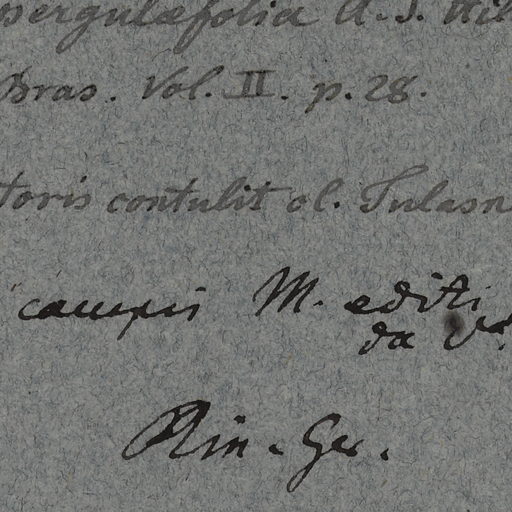 spergulæfolia A. S. Hil
Bras. Vol. II. p. 28.
toris contulit cl. Tulasn
campis M. editi
da
Min. Ger.